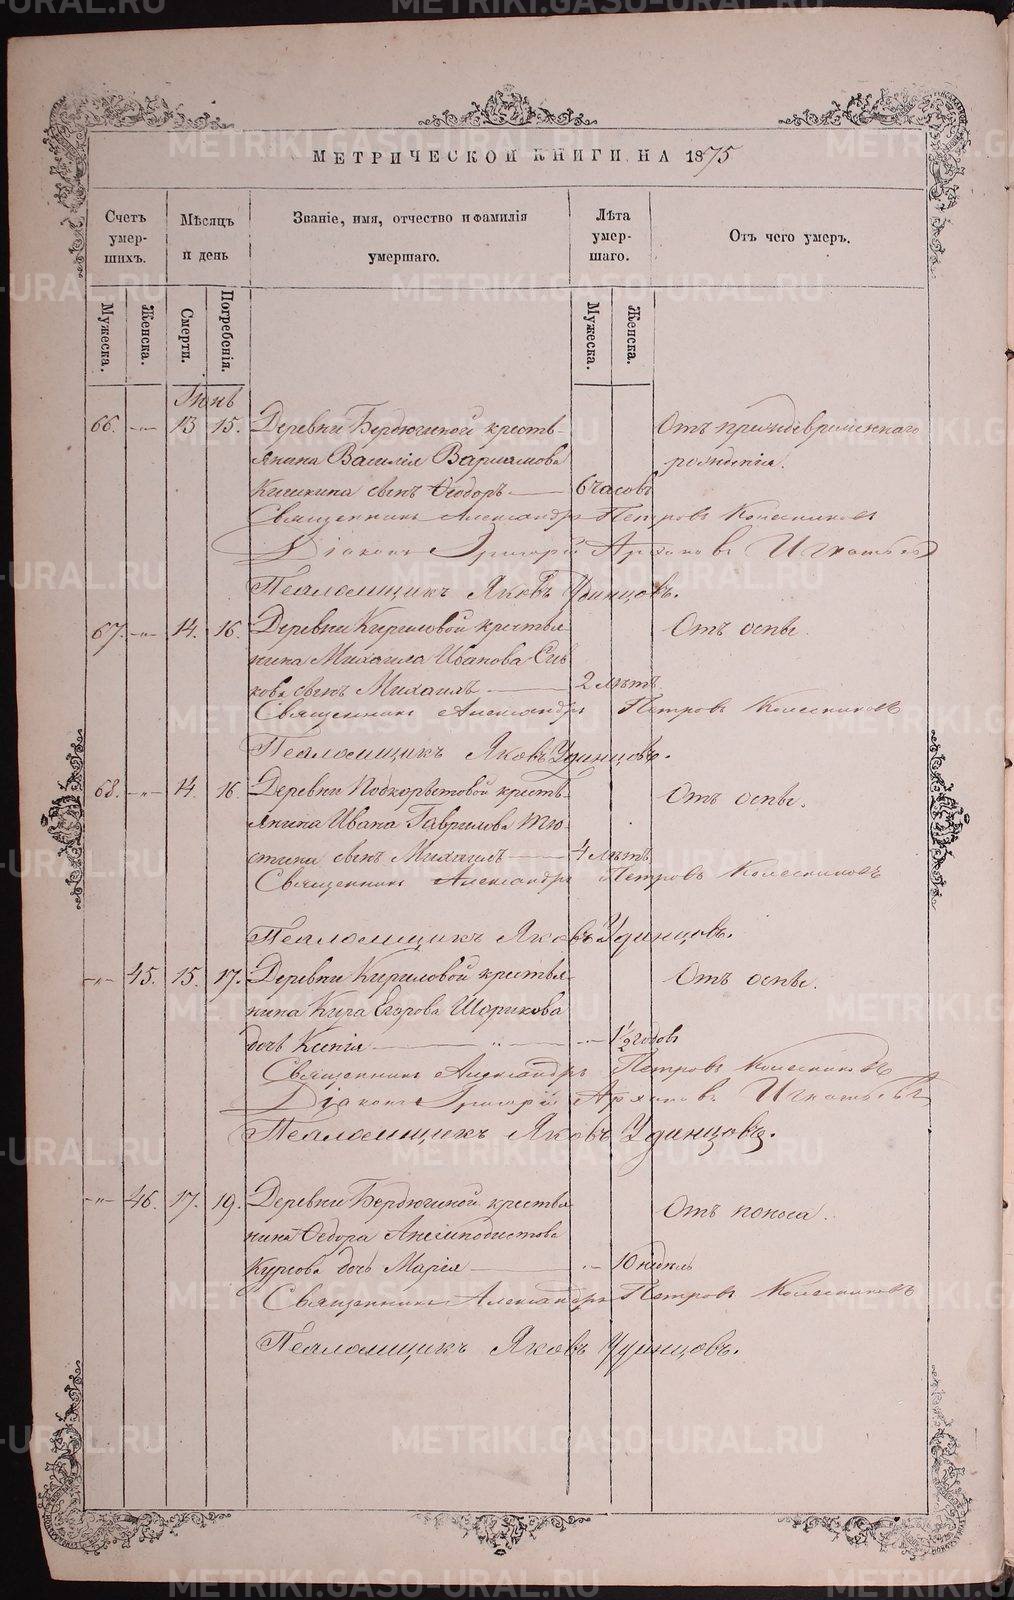 МЕТРИЧЕСКОЙ КНИГИ НА 1875
Счетъ умер-шихъ.
Мѣсяцъ и день
Званіе, имя, отчество и фамилія умершаго.
Лѣта умер-шаго.
Отъ чего умеръ.
Мужеска.
Женска.
Смерти.
Погребенія.
Мужеска.
Женска.
Іюнь
66. -„- 13 15. Деревни Бердюгиной кресть- Отъ преждевременнаго
янина Василія Варламова рожденія.
Кишкина сынъ Ѳеодоръ 6 часовъ
Священникъ Александръ Петровъ Колесниковъ
Діаконъ Григорій Игнатьевъ
Псаломщикъ Яковъ Удинцовъ.
67. -„- 14. 16. Деревни Кириловой крестья- Отъ оспы.
нина Михаила Иванова
сынъ Михаилъ 2 лѣтъ
Священникъ Александръ Петровъ Колесниковъ
Псаломщикъ Яковъ Удинцовъ.
68. -„- 14. 16. Деревни Подкорытовой кресть- Отъ оспы.
янина Ивана Гаврилова Тю-
стина сынъ Михаилъ 4 лѣтъ
Священникъ Александръ Петровъ Колесниковъ
Псаломщикъ Яковъ Удинцовъ.
-„- 45. 15. 17. Деревни Кириловой крестья- Отъ оспы.
нина Кира Егорова Шорикова
дочь -„- 1½ годовъ
Священникъ Александръ Петровъ Колесниковъ
Діаконъ Григорій Игнатьевъ
Псаломщикъ Яковъ Удинцовъ.
-„- 46. 17. 19. Деревни Бердюгиной крестья- Отъ поноса.
нина Ѳедора Анемподистова
дочь Марія -„- 10 недѣль
Священникъ Александръ Петровъ Колесниковъ
Псаломщикъ Яковъ Удинцовъ.
METRIKI.GASO-URAL.RU